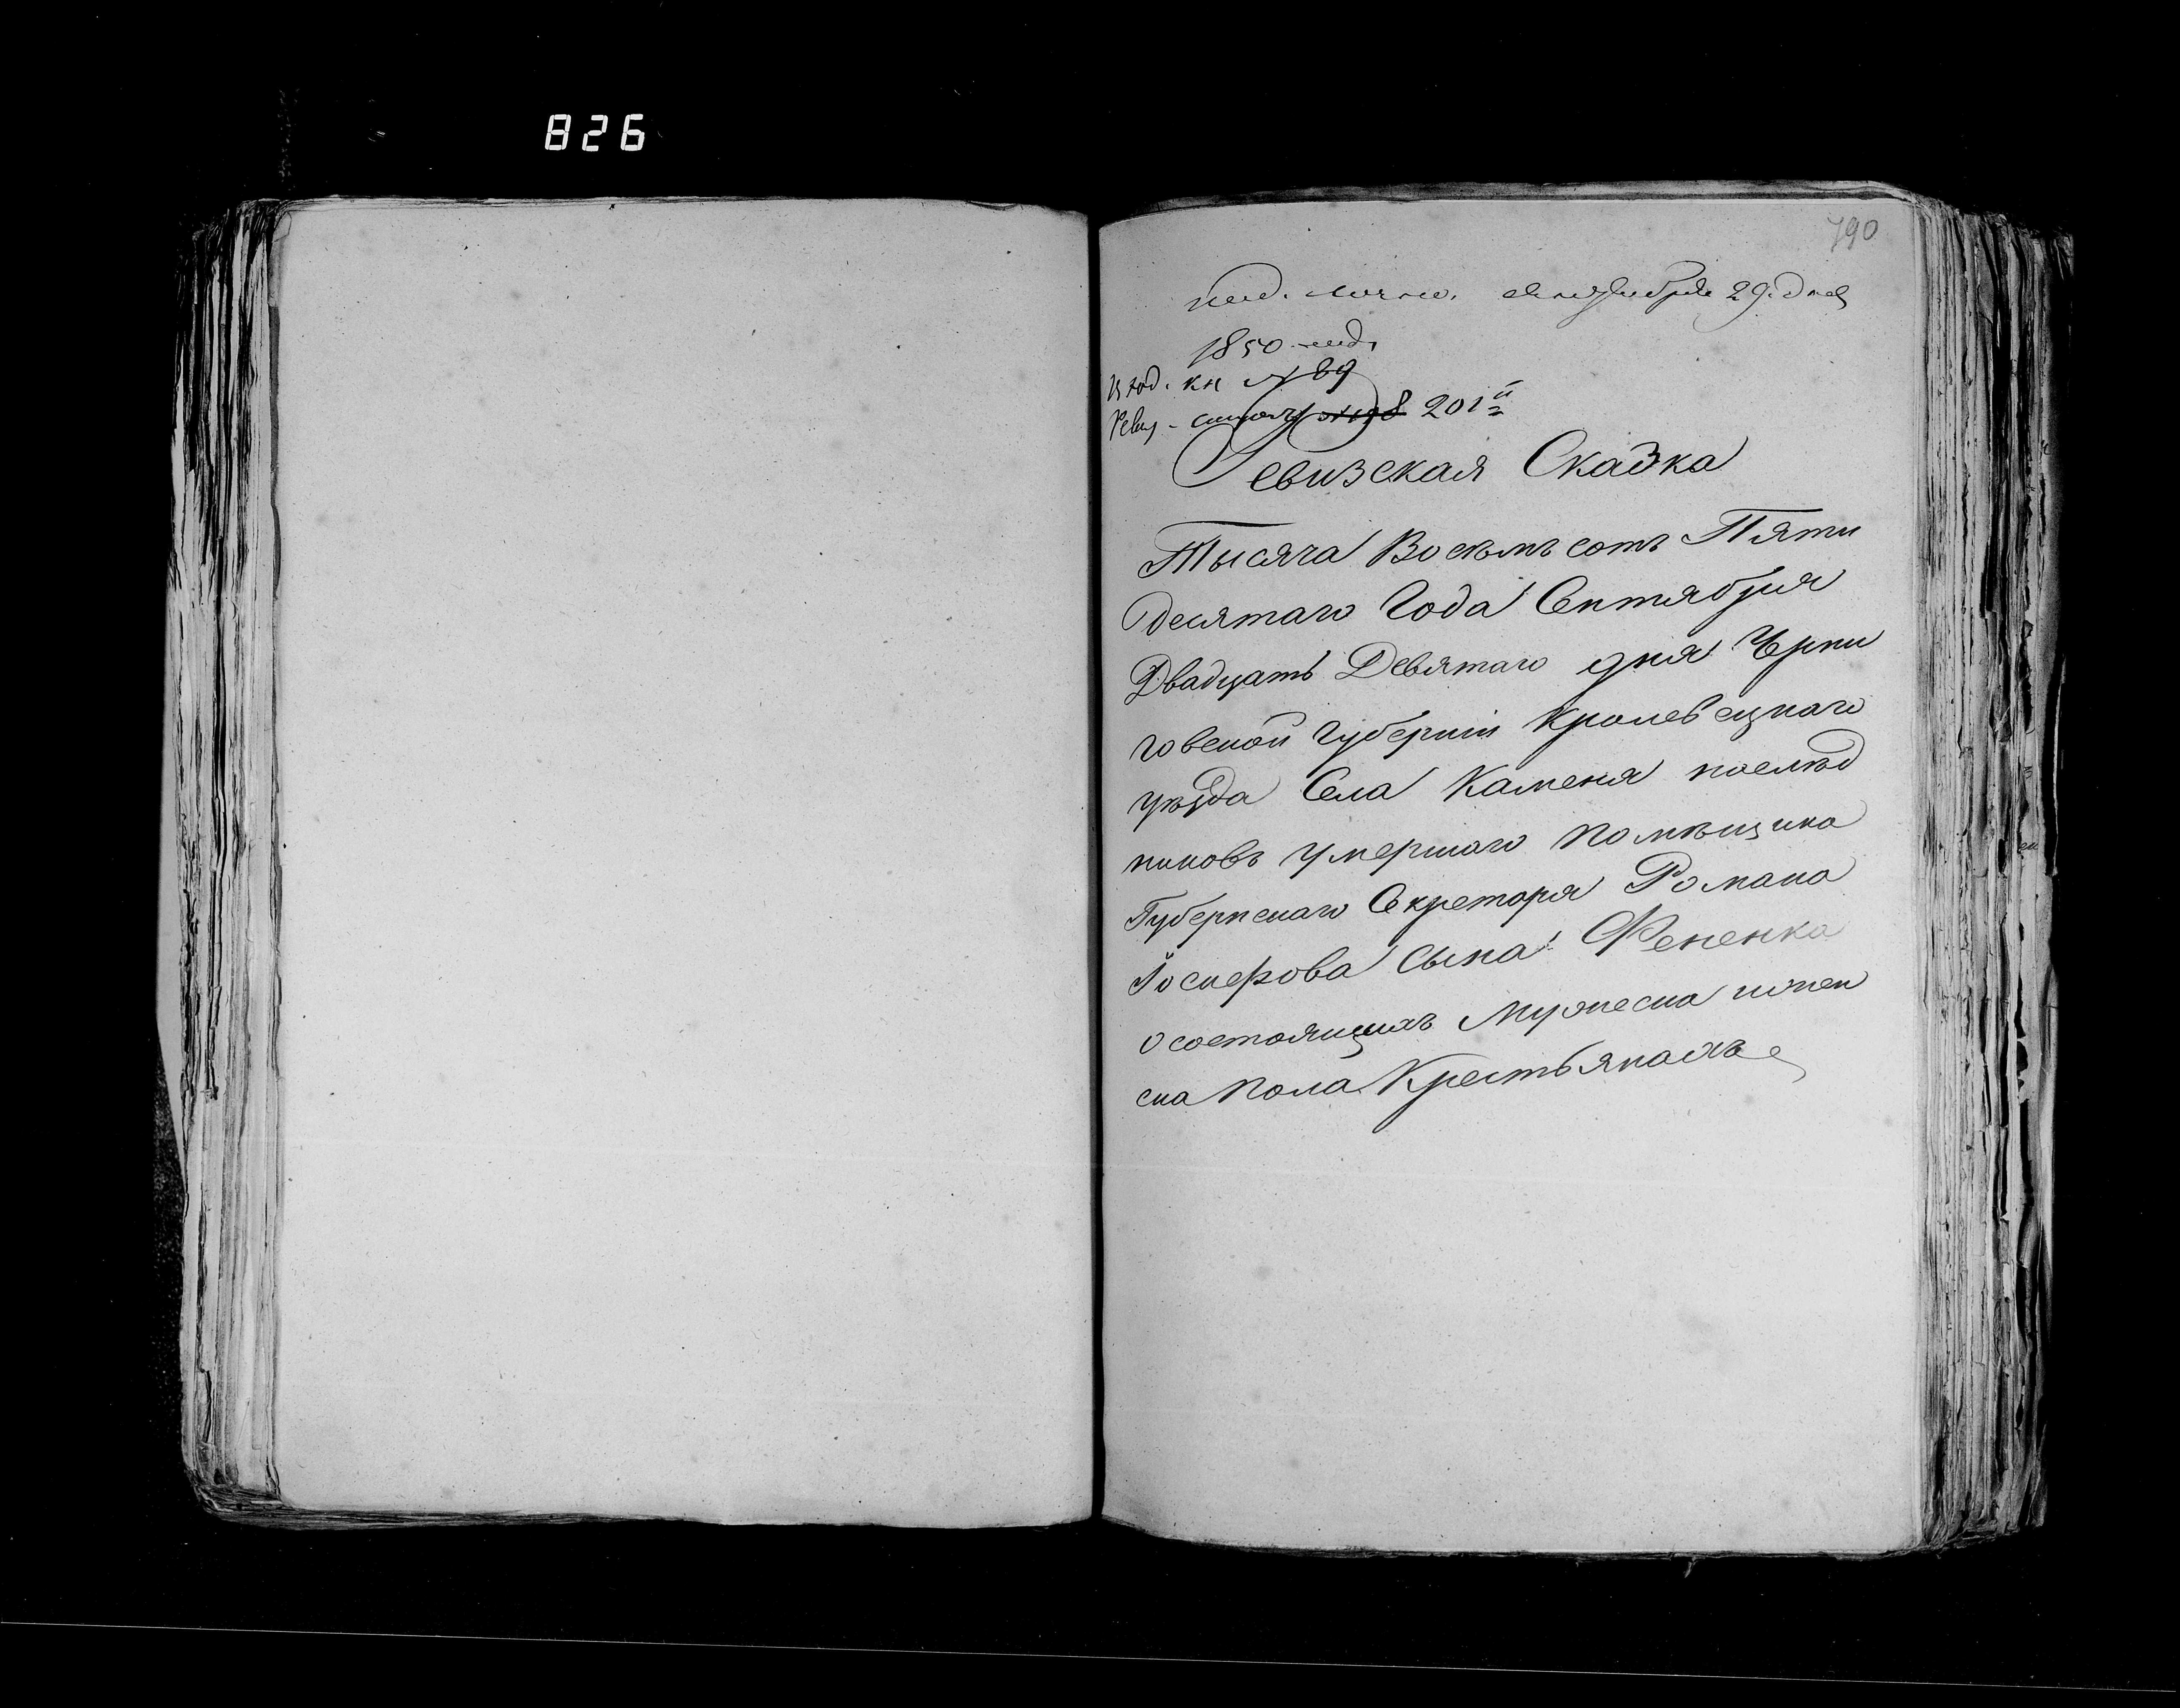 826
790
под. лично. сентября 29. дня
1850 года
В ход. кн № 89
Ревиз. 201й
Ревизская Сказка
Тысяча Восемьсотъ Пяти
десятаго Года Сентября
Двадцать Девятаго дня Черни
говской Губерніи Кролевецкаго
уѣзда Села Каменя наслѣд
никовъ умершаго Помѣщика
Губернскаго Секретаря Романа
Іосифова Сына Фененка
о состоящихъ Мужеска и женс
ка Пола Крестьянахъ